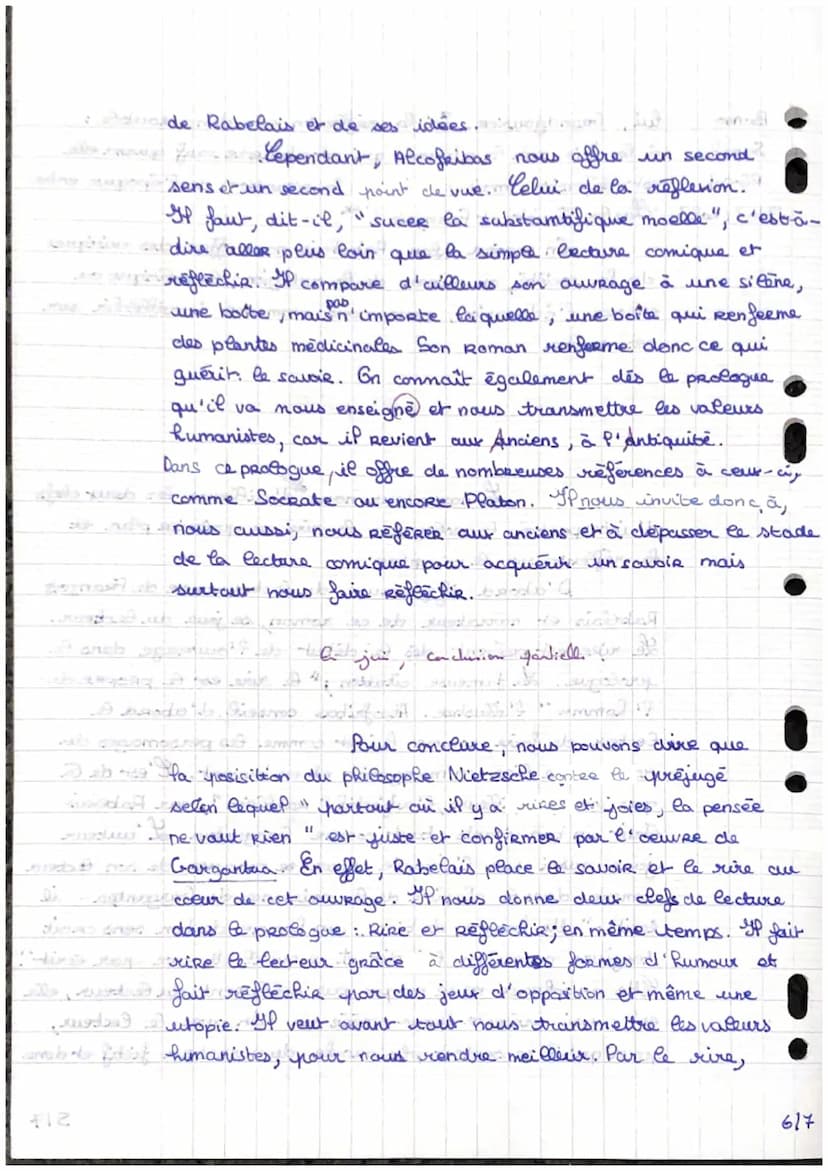 de Rabelais et de ses idées.
Cependant, Alcofribas nous offre un second
sens et un second point de vue. Celui de la réflexion.
Il faut, dit-il, "sucer la substantifique moelle", c'est-à-
dire aller plus loin que la simple lecture comique et
réfléchir. Il compare d'ailleurs son ouvrage à une silène,
une boîte, mais pas n'importe laquelle, une boîte qui renferme
des plantes médicinales. Son roman renferme donc ce qui
guérit: le savoir. On connaît également dès le prologue
qu'il va nous enseigné et nous transmettre les valeurs
humanistes, car il revient aux Anciens, à l'Antiquité.
Dans ce prologue, il offre de nombreuses références à ceux-ci,
comme Socrate ou encore Platon. Il nous invite donc à,
nous aussi, nous référer aux anciens et à dépasser le stade
de la lecture comique pour acquérir un savoir mais
surtout nous faire réfléchir.
conclusion partielle.
Pour conclure, nous pouvons dire que
la posisition du philosophe Nietzsche contre le préjugé
selon lequel "partout où il y a rires et joies, la pensée
ne vaut rien" est juste et confirmer par l'oeuvre de
Gargantua. En effet, Rabelais place le savoir et le rire au
coeur de cet ouvrage. Il nous donne deux clefs de lecture
dans le prologue : Rire et Réfléchir; en même temps. Il fait
rire le lecteur grâce à différentes formes d'humour et
fait réfléchir par des jeux d'opposition et même une
utopie. Il veut avant tout nous transmettre les valeurs
humanistes, pour nous rendre meilleur. Par le rire,
6/7